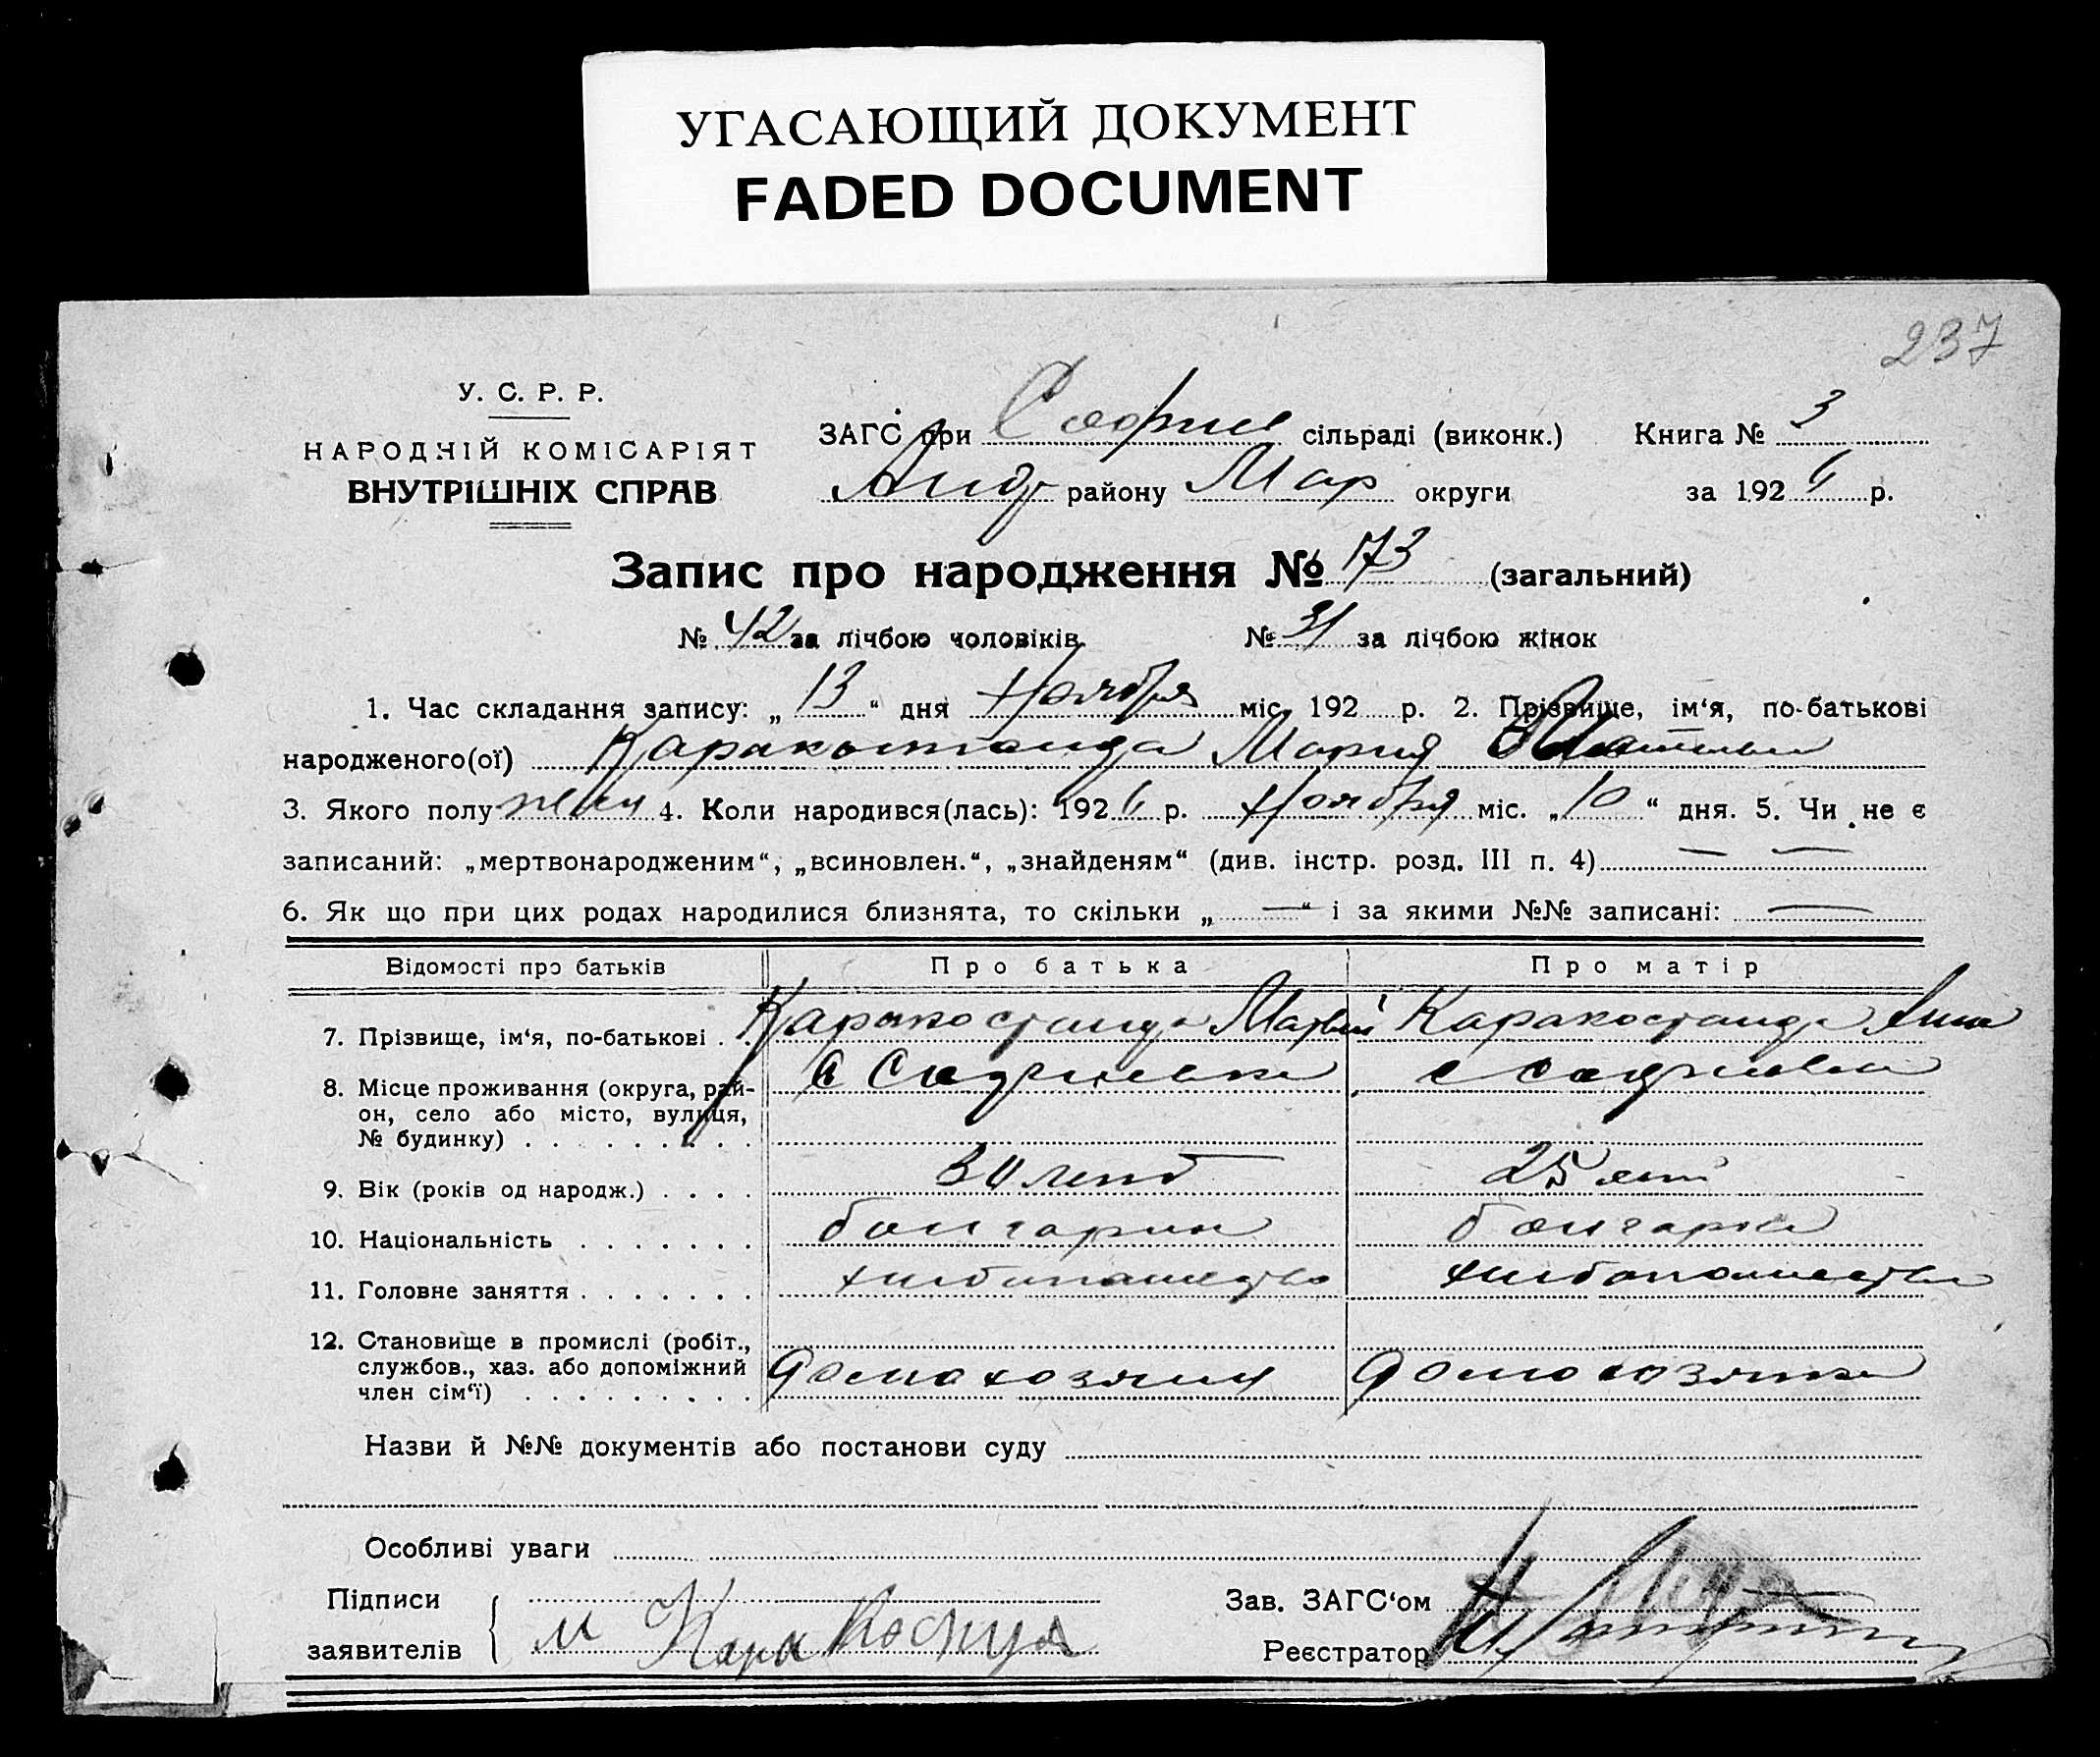 УГАСАЮЩИЙ ДОКУМЕНТ
FADED DOCUMENT
237
У. С. Р. Р.
НАРОДНІЙ КОМІСАРІЯТ
ВНУТРІШНІХ СПРАВ
ЗАГС при Софиев сільраді (виконк.) Книга № 3
Андр району Мар округи за 1926 р.
Запис про народження № 173 (загальний)
№ 42 за лічбою чоловіків № 31 за лічбою жінок
1. Час складання запису: „ 13 “ дня Ноября міс. 192 р. 2. Прізвище, ім‘я, по-батькові
народженого(ої) Каракостанда Мария
3. Якого полу жен 4. Коли народився(лась): 1926 р. Ноября міс. „ 10 “ дня. 5. Чи не є
записаний: „мертвонародженим“, „всиновлен.“, „знайденям“ (див. інстр. розд. III п. 4) — —
6. Як що при цих родах народилися близнята, то скільки „ — “ і за якими №№ записані: —
Відомості про батьків Про батька Про матір
7. Прізвище, ім‘я, по-батькові . . Каракостанда Матвей Каракостанда Анна
8. Місце проживання (округа, рай- с Софиевка с Софиевка
он, село або місто, вулиця,
№ будинку) . . . . . . . . .
9. Вік (років од народж.) . . . . 30 лет 25 лет
10. Національність . . . . . . . болгарин болгарка
11. Головне заняття . . . . . . . хлебопашество хлебопашество
12. Становище в промислі (робіт.,
службов., хаз. або допоміжний домохозяин домохозяйка
член сім‘ї) . . . . . . . . .
Назви й №№ документів або постанови суду
Особливі уваги
Підписи Зав. ЗАГС‘ом
заявителів М Кара Реєстратор